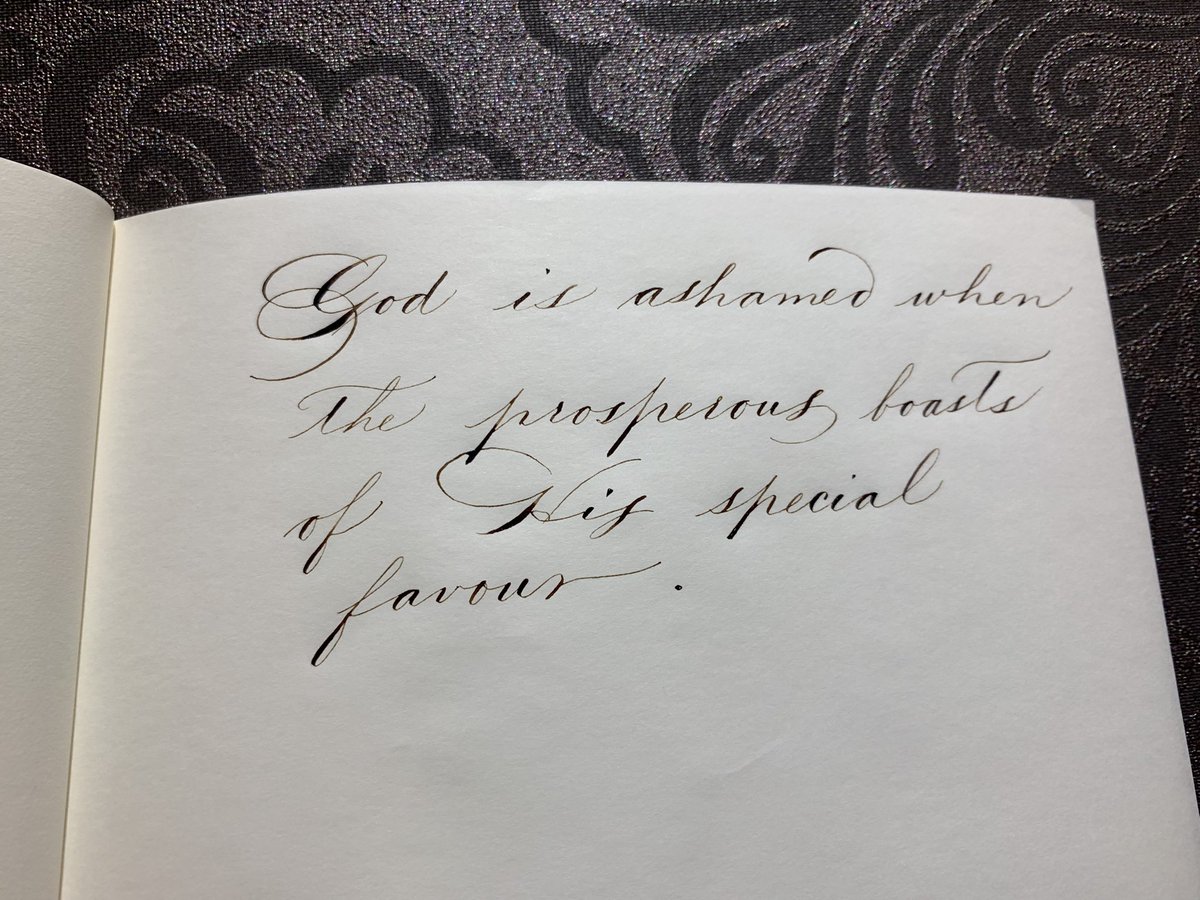 God is ashamed when
the prosperous boasts
of His special
favour.